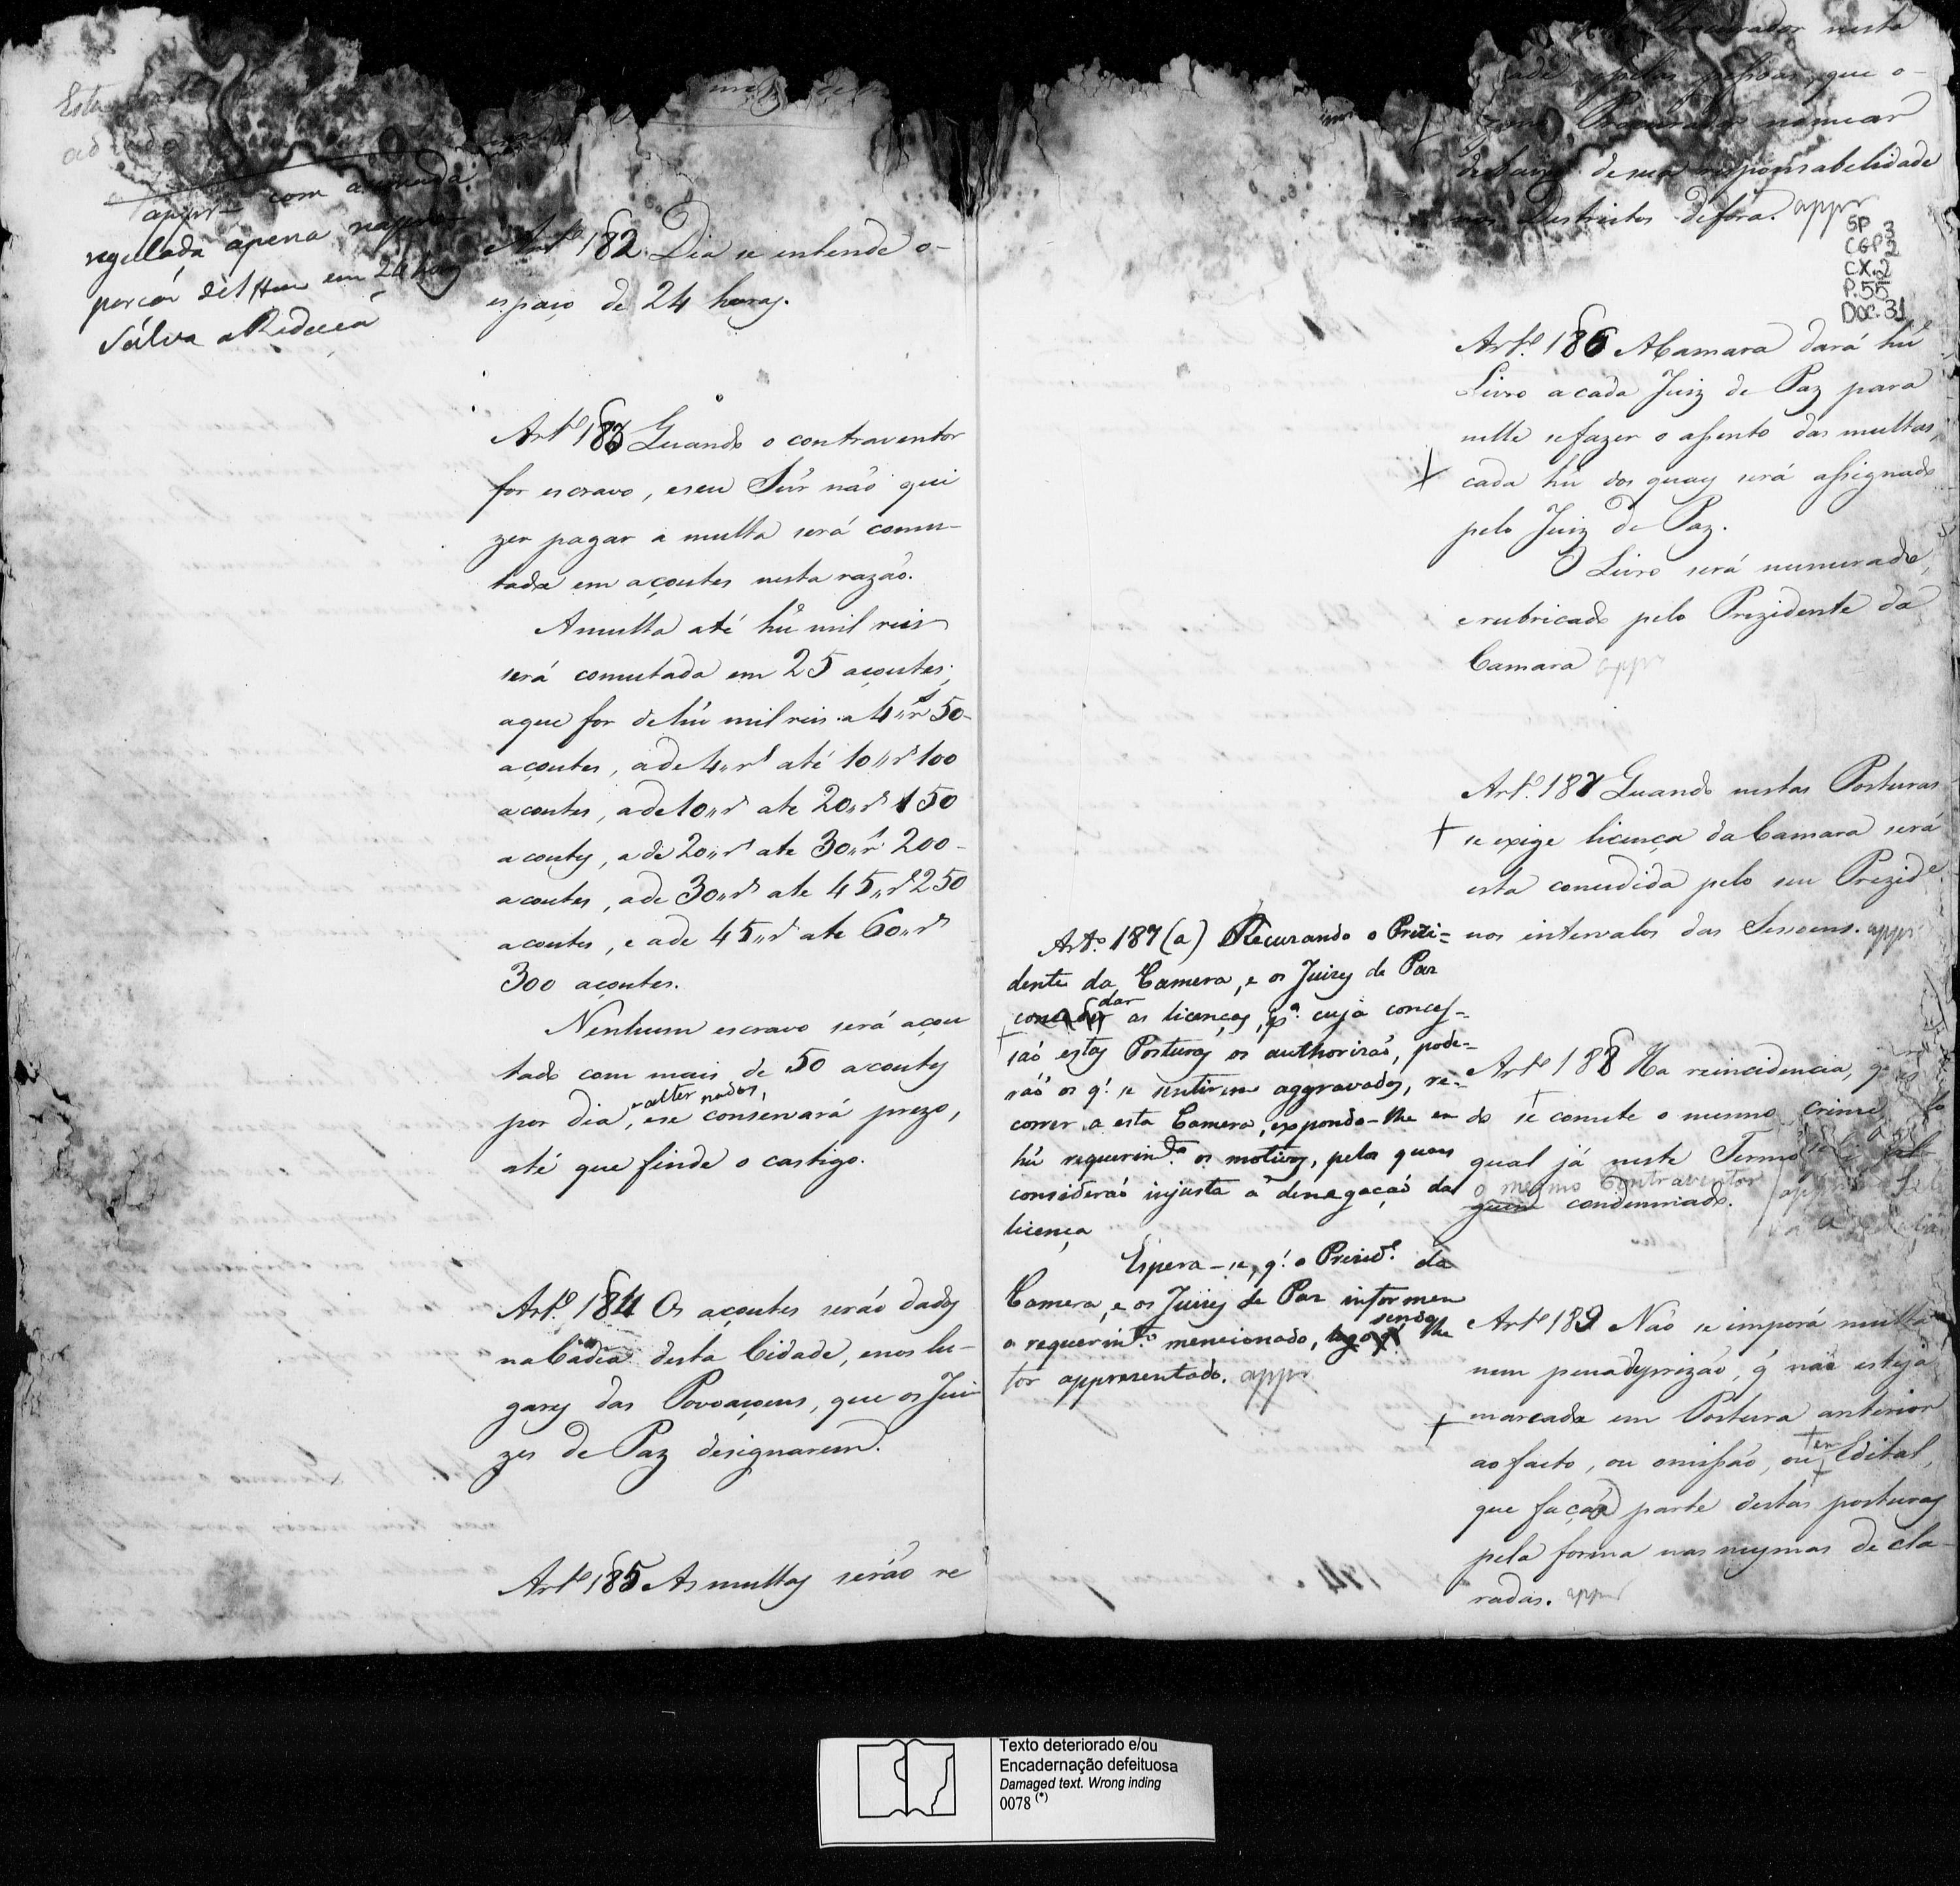 appr com a emenda
regulada apena na
em 24 horas
Salva a Redacçá
Artº 182 Dia se entende o-
espaço de 24 horas.
Artº 183 Quando o contraventor
for escravo, eseu Snr̃ não qui
zer pagar a multa será comu-
tada em açoutes nesta razão.
Amulta até hũ mil reis
será comutada em 25 açoutes;
aque for dehũ mil reis a 4„rs 50-
açoutes, ade 4„rs até 10„rs 100
açoutes, ade 10„rs ate 20„rs 150
açoutes, a de 20„rs ate 30„rs 200-
açoutes, ade 30„rs ate 45„rs 250
açoutes, e ade 45„rs ate 60„rs
300 açoutes.
Nenhum escravo será açou
tado com mais de 50 açoutes
alternados,
por dia, ese conservará prezo,
até que finde o castigo.
Artº 184 Os açoutes seráo dados
naCadea desta Cidade, enos lu-
gares das Povoaçoens, que os Jui
zes de Paz designarem.
Artº 185 As multas seráo re
nesta
pelas pessoas, que o-
Procurador nomear
debaixo desua responsabelidade
nos Destrictos defóra. appr
SP 3
CGP 2
CX. 2
P. 55
DOC. 31
Artº 186 ACamara dará hũ
Livro acada Juiz de Paz para
nelle sefazer o assento das multas,
cada hũ dos quaes será assignado
pelo Juiz de Paz.
O Livro será numerado,
erubricado pelo Prezidente da
Camara appr
Artº 187 Quando nestas Posturas
se exige licença daCamara será
esta concedida pelo seu Prezide
nos intervalos das Sessoens. appr
Artº 187 (a) Recusando o Prezi=
dente da Camera, e os Juizes de Paz
dar
conceder as licenças, pª cuja conces-
saó estas Posturas os authorizaó, pode-
raó os q̃ se sentirem aggravados, re-
correr a esta Camera, expondo-lhe em
hũ requerimtº os motivos, pelos quaes
consideraó injusta a denegaçaó da
licença
Espera-se, q̃ o Prezide da
Camera, e os Juizes de Paz informem
o requerimtº mencionado, logo q̃ lhe
sendo
for appresentado. appr
Artº 188 Ha reincidencia, qº
do se comete o mesmo crime
qual já neste Termo
o mesmo Contraventor
condemnado.
Artº 189 Não se imporá multa
nem penadeprizão, q̃ não esteja
marcada em Postura anterior
ao facto, ou omissáo, ou em Edital,
que faça parte destas posturas
pela forma nas mesmas decla
radas. appr
Texto deteriorado e/ou
Encadernação defeituosa
Damaged text. Wrong inding
0078 (*)